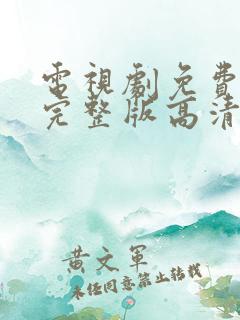 電視劇免費
完整版高清
黃文軍
未經同意禁止轉載